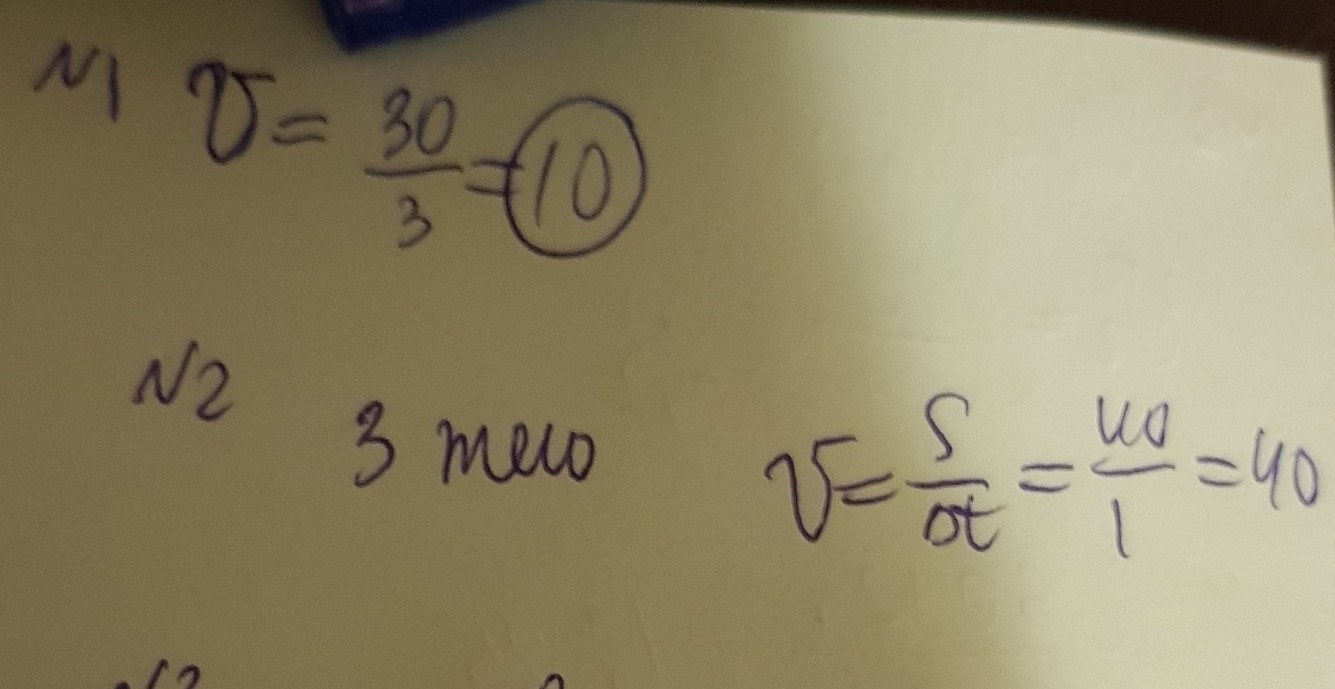 N1 V = 30/3 = 10
N2 3 тело V = S/Δt = 40/1 = 40
N3